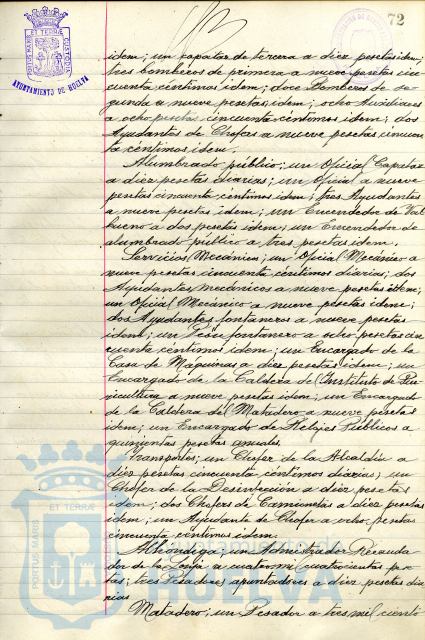 72
PORTUS MARIS ET TERRÆ CUSTODIA
AYUNTAMIENTO DE HUELVA
idem; un capataz de tercera a diez pesetas idem;
tres bomberos de primera a nueve pesetas cin-
cuenta céntimos idem; doce Bomberos de se-
gunda a nueve pesetas idem; ocho Auxiliares
a ocho pesetas cincuenta céntimos idem; dos
Ayudantes de Chofers a nueve pesetas cincuen
ta céntimos idem.
Alumbrado público; un Oficial Capataz
a diez pesetas diarias; un Oficial a nueve
pesetas cincuenta céntimos idem; tres Ayudantes
a nueve pesetas idem; un Encendedor de Val
bueno a dos pesetas idem; un Encendedor de
alumbrado público a tres pesetas idem.
Servicios Mecánicos; un Oficial Mecánico a
nueve pesetas cincuenta céntimos diarias; dos
Ayudantes mecánicos a nueve pesetas idem;
un Oficial Mecánico a nueve pesetas idem;
dos Ayudantes fontaneros a ocho pesetas
idem; un Peón fontanero a ocho pesetas cin
cuenta céntimos idem; un Encargado de la
Casa de Maquinas a diez pesetas idem; un
Encargado de la Caldera del Instituto de Pue
ricultura a nueve pesetas idem; un Encargado
de la Caldera del Matadero a nueve pesetas
idem; un Encargado de Relojes Públicos a
quinientas pesetas anuales.
Transportes; un Chofer de la Alcaldía a
diez pesetas cincuenta céntimos diarias; un
Chofer de la Desinfección a diez pesetas
idem; dos Chofers de Camionetas a diez pesetas
idem; un Ayudante de Chofer a ocho pesetas
cincuenta céntimos idem.
Alhondiga; un Administrador Recauda
dor de la Lonja a cuatro mil cuatrocientas pese
tas; tres Pesadores apuntadores a diez pesetas dia
rias
Matadero; un Pesador a tres mil ciento
PORTUS MARIS ET TERRÆ
Ayuntamiento de
HUELVA